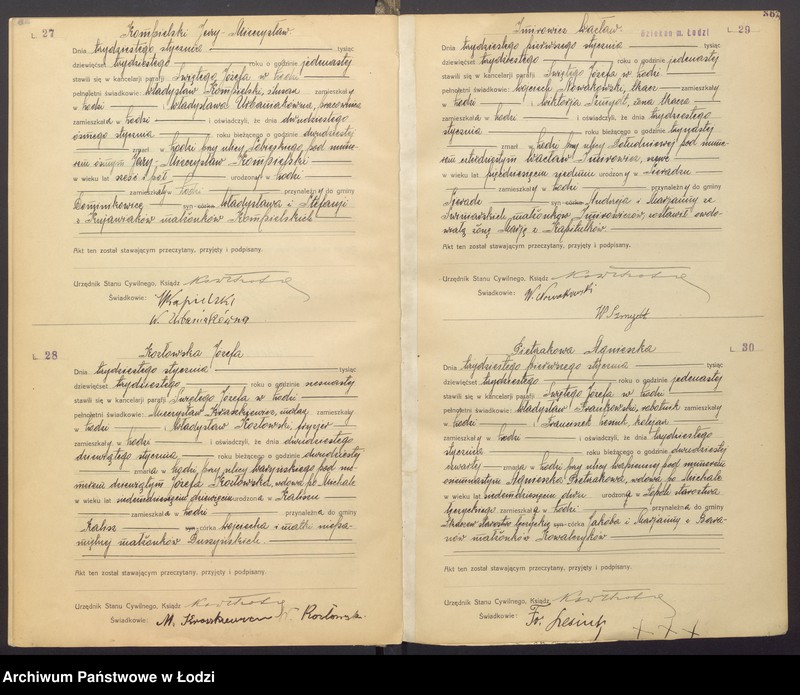 L. 27
Kompielski Jerzy-Mieczysław
Dnia trzydziestego stycznia tysiąc
dziewięćset trzydziestego roku o godzinie jedenastej
stawili się w kancelarji parafji Świętego Józefa w Łodzi
pełnoletni świadkowie: Władysław Kompielski, zamieszkały
w Łodzi i Władysława Urbaniakówna,
zamieszkała w Łodzi i oświadczyli, że dnia dwudziestego
ósmego stycznia roku bieżącego o godzinie dwudziestej
zmarł w Łodzi przy ulicy Sobieskiego pod nume-
rem ósmym Jerzy-Mieczysław Kompielski
w wieku lat sześć i pół urodzony w Łodzi
zamieszkały w Łodzi przynależny do gminy
syn córka Władysława i Stefanji
z Kujawiaków małżonków Kompielskich
Akt ten został stawającym przeczytany, przyjęty i podpisany.
Urzędnik Stanu Cywilnego, Ksiądz
Świadkowie:
W. Urbaniakówna
L. 28
Kozłowska Józefa
Dnia trzydziestego stycznia tysiąc
dziewięćset trzydziestego roku o godzinie szesnastej
stawili się w kancelarji parafji Świętego Józefa w Łodzi
pełnoletni świadkowie: Mieczysław zamieszkały
w Łodzi i Władysław Kozłowski, fryzjer
zamieszkały w Łodzi i oświadczyli, że dnia dwudziestego
dziewiątego stycznia roku bieżącego o godzinie dwudziestej
zmarła w Łodzi przy ulicy pod nu-
merem dziewiątym Józefa Kozłowska, wdowa po Michale
w wieku lat siedemdziesięciu dziewięciu urodzona w Kaliszu
zamieszkała w Łodzi przynależna do gminy
Kalisz syn córka Wojciecha i matki niepa-
miętnej małżonków Duszyńskich.
Akt ten został stawającym przeczytany, przyjęty i podpisany.
Urzędnik Stanu Cywilnego, Ksiądz
Świadkowie: M. Kozłowski
L. 29
Imirowicz Wacław.
Dnia trzydziestego pierwszego stycznia tysiąc
dziewięćset trzydziestego roku o godzinie jedenastej
stawili się w kancelarji parafji Świętego Józefa w Łodzi
pełnoletni świadkowie: Wojciech Nowakowski, tkacz zamieszkały
w Łodzi i Wiktorja Szmydt, żona tkacza
zamieszkała w Łodzi i oświadczyli, że dnia trzydziestego
stycznia roku bieżącego o godzinie trzynastej
zmarł w Łodzi przy ulicy Południowej pod nume-
rem Wacław Imirowicz,
w wieku lat pięćdziesięciu siedmiu urodzony w Sieradzu
zamieszkały w Łodzi przynależny do gminy
Sieradz syn córka Andrzeja i Marjanny ze
małżonków Imirowiczów, zostawił owdo-
wiałą żonę Marję z Kapitułków.
Akt ten został stawającym przeczytany, przyjęty i podpisany.
Urzędnik Stanu Cywilnego, Ksiądz
Świadkowie: W. Nowakowski
W Szmydt
L. 30
Pietrzakowa Agnieszka
Dnia trzydziestego pierwszego stycznia tysiąc
dziewięćset trzydziestego roku o godzinie jedenastej
stawili się w kancelarji parafji Świętego Józefa w Łodzi
pełnoletni świadkowie: Władysław Frankowski, robotnik zamieszkały
w Łodzi i Franciszek kolejarz
zamieszkały w Łodzi i oświadczyli, że dnia trzydziestego
stycznia roku bieżącego o godzinie dwudziestej
czwartej zmarła w Łodzi przy ulicy pod numerem
osiemnastym Agnieszka Pietrzakowa, wdowa po Michale
w wieku lat siedemdziesięciu urodzona w starostwa
łęczyckiego zamieszkała w Łodzi przynależna do gminy
syn córka Jakóba i Marjanny z
małżonków Kowalczyków
Akt ten został stawającym przeczytany, przyjęty i podpisany.
Urzędnik Stanu Cywilnego, Ksiądz
Świadkowie: Fr.
+ + +
Archiwum Państwowe w Łodzi